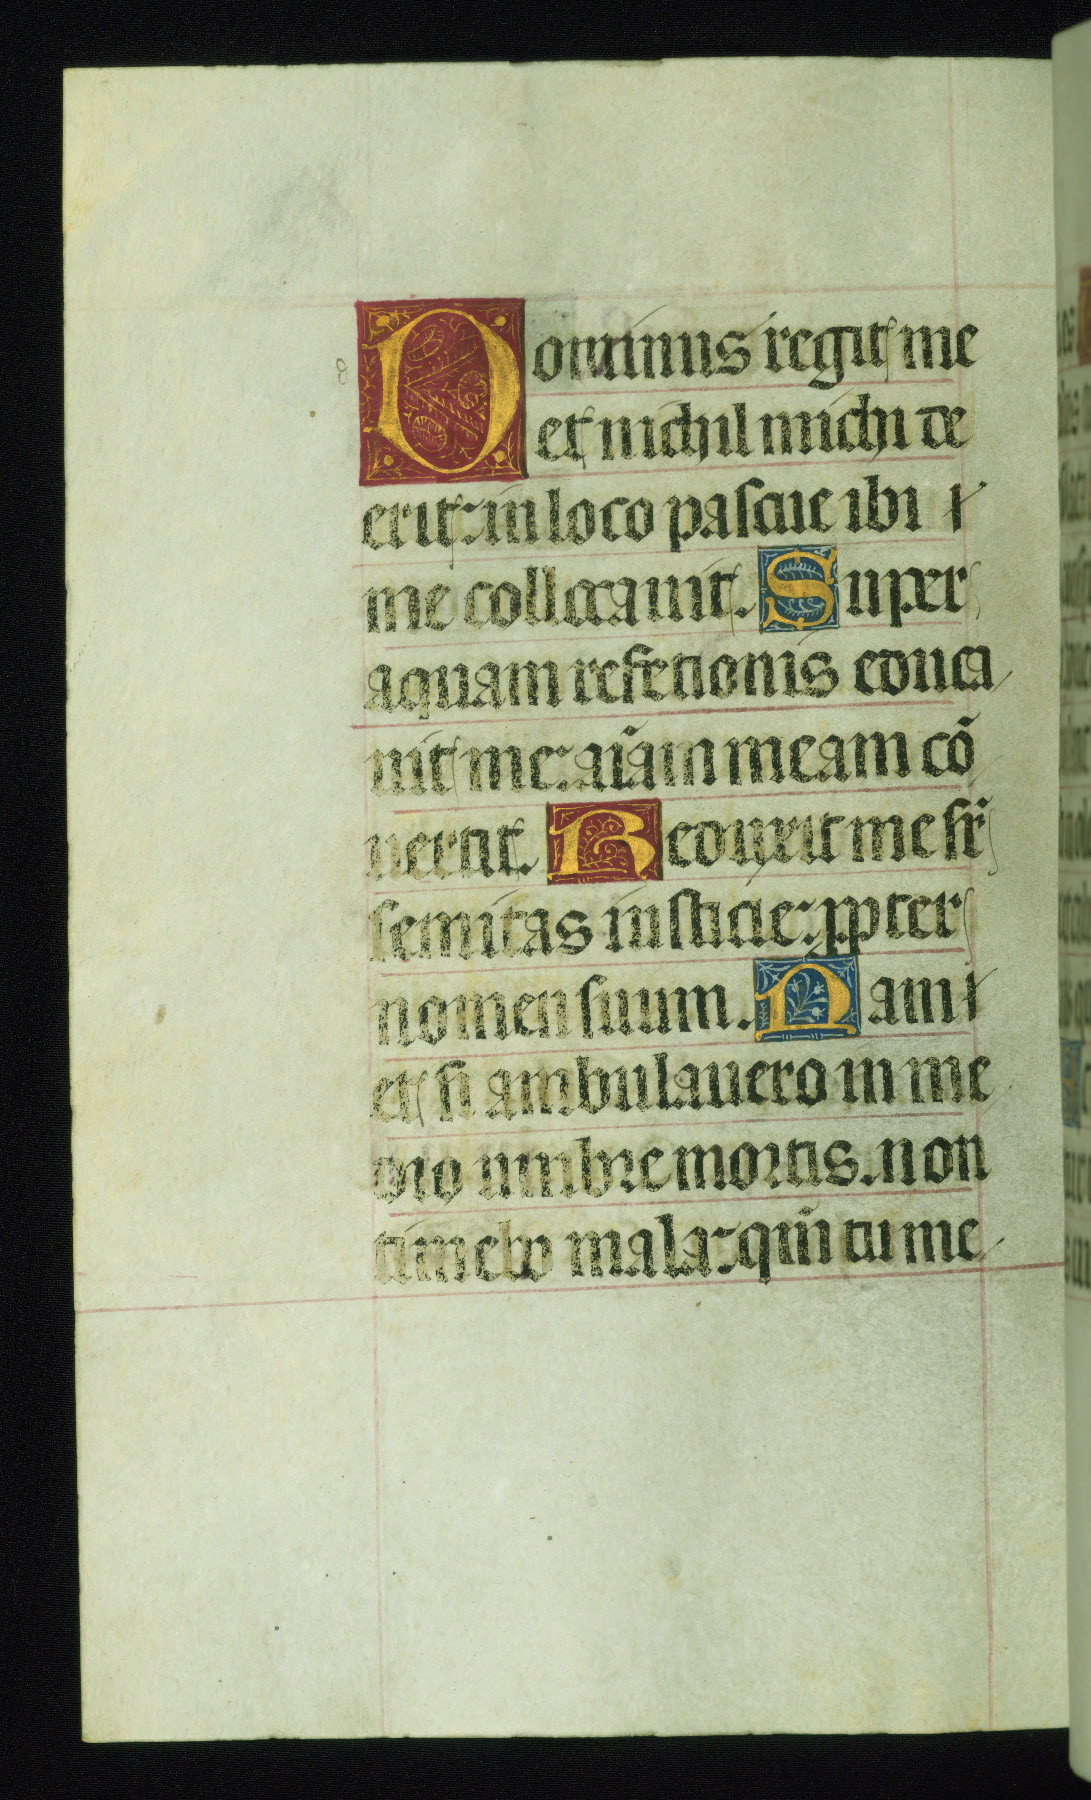 Dominus regit me
et nichil michi de
erit: in loco pascue ibi
me collocauit. Super
aquam refectionis educa
uit me: aīam meam cō
uertit. Reduxit me sr̄
semitas iusticie: ꝓpter
nomen suum. Nam
et si ambulauero in me
dio umbre mortis. non
timebo mala: qm̄ tu me